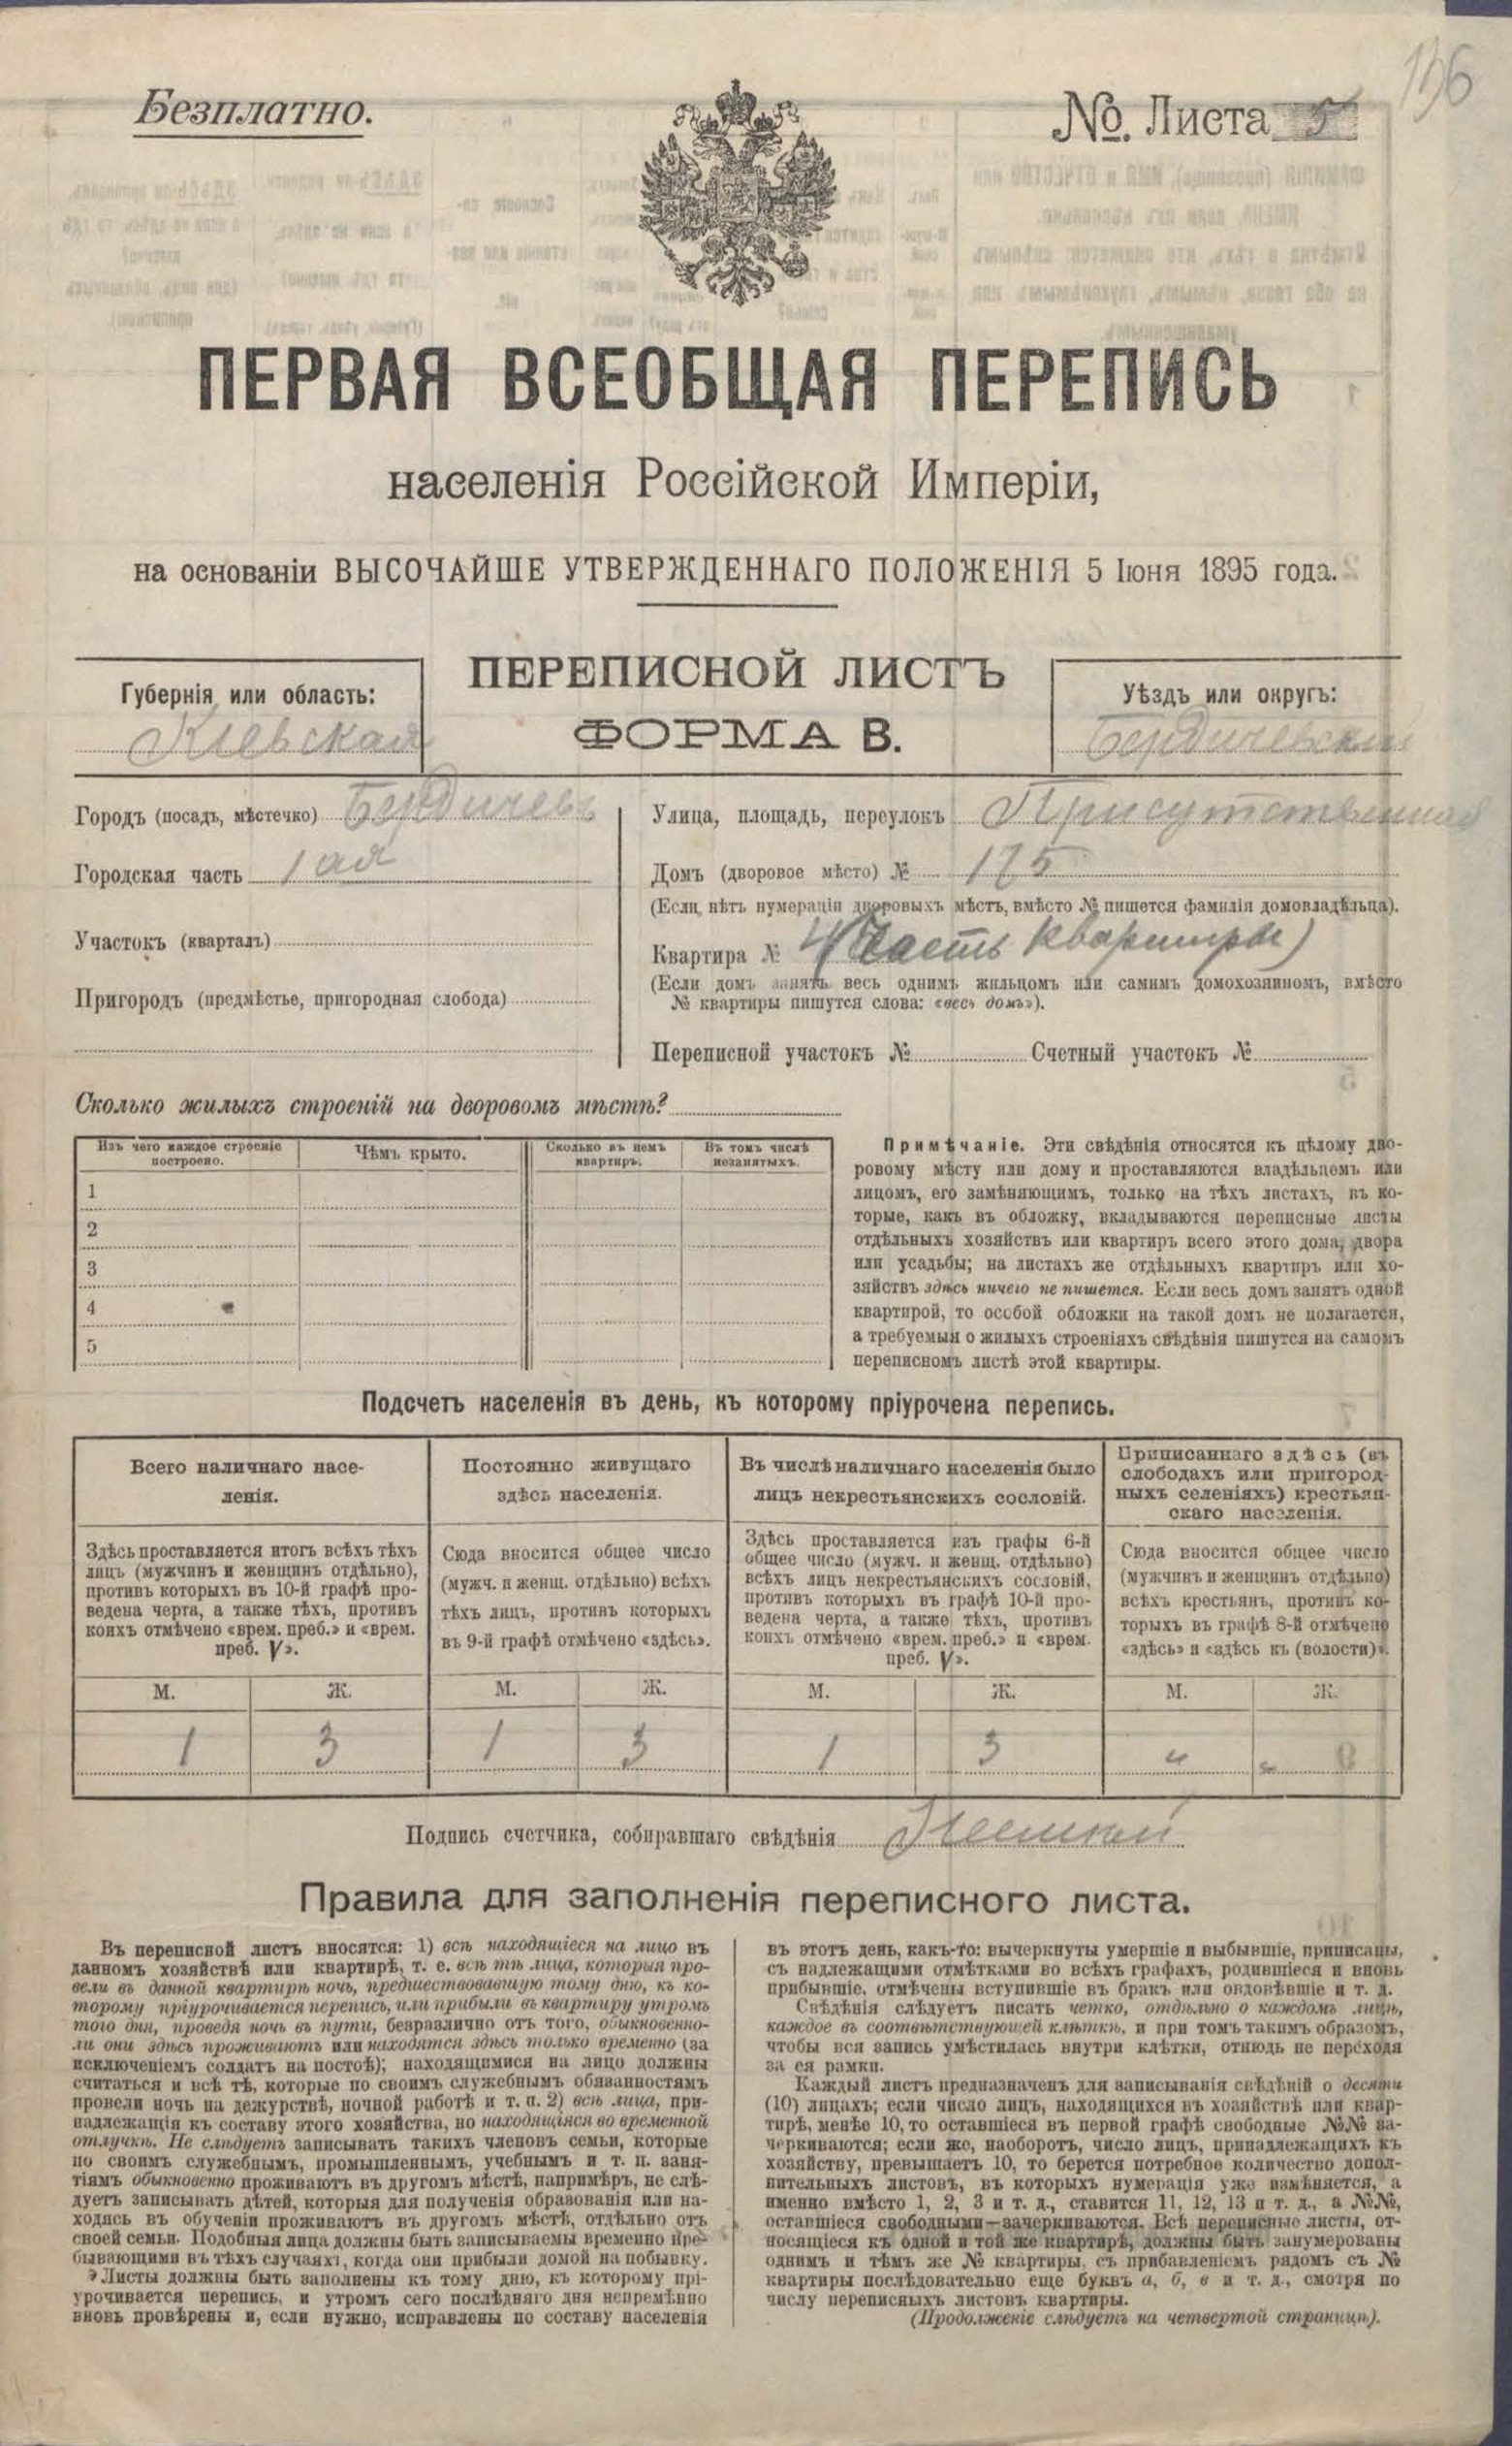 Безплатно.
№. Листа 5
136
ПЕРВАЯ ВСЕОБЩАЯ ПЕРЕПИСЬ
населенія Россійской Имперіи,
на основаніи ВЫСОЧАЙШЕ УТВЕРЖДЕННАГО ПОЛОЖЕНІЯ 5 Іюня 1895 года.
ПЕРЕПИСНОЙ ЛИСТЪ
ФОРМА В.
Губернія или область:
Кіевская
Уѣздъ или округъ:
Бердичевскій
Городъ (посадъ, мѣстечко) Бердичевъ
Городская часть 1 ая
Участокъ (кварталъ)
Пригородъ (предмѣстье, пригородная слобода)
Улица, площадь, переулокъ Присутственная
Домъ (дворовое мѣсто) № 175
(Если нѣтъ нумераціи дворовыхъ мѣстъ, вмѣсто № пишется фамилія домовладѣльца).
Квартира № 4 (Часть квартиры)
(Если домъ занятъ весь однимъ жильцомъ или самимъ домохозяиномъ, вмѣсто
№ квартиры пишутся слова: «весь домъ»).
Переписной участокъ № Счетный участокъ №
Сколько жилыхъ строеній на дворовомъ мѣстѣ?
Изъ чего каждое строеніе
построено.
Чѣмъ крыто.
Сколько въ немъ
квартиръ.
Въ томъ числѣ
незанятыхъ.
1
2
3
4
5
Примѣчаніе. Эти свѣдѣнія относятся къ цѣлому дво-
ровому мѣсту или дому и проставляются владѣльцемъ или
лицомъ, его замѣняющимъ, только на тѣхъ листахъ, въ ко-
торые, какъ въ обложку, вкладываются переписные листы
отдѣльныхъ хозяйствъ или квартиръ всего этого дома, двора
или усадьбы; на листахъ же отдѣльныхъ квартиръ или хо-
зяйствъ здѣсь ничего не пишется. Если весь домъ занятъ одной
квартирой, то особой обложки на такой домъ не полагается,
а требуемыя о жилыхъ строеніяхъ свѣдѣнія пишутся на самомъ
переписномъ листѣ этой квартиры.
Подсчетъ населенія въ день, къ которому пріурочена перепись.
Всего наличнаго насе-
ленія.
Здѣсь проставляется итогъ всѣхъ тѣхъ
лицъ (мужчинъ и женщинъ отдѣльно),
противъ которыхъ въ 10-й графѣ про-
ведена черта, а также тѣхъ, противъ
коихъ отмѣчено «врем. преб.» и «врем.
преб. V».
Постоянно живущаго
здѣсь населенія.
Сюда вносится общее число
(мужч. и женщ. отдѣльно) всѣхъ
тѣхъ лицъ, противъ которыхъ
въ 9-й графѣ отмѣчено «здѣсь».
Въ числѣ наличнаго населенія было
лицъ некрестьянскихъ сословій.
Здѣсь проставляется изъ графы 6-й
общее число (мужч. и женщ. отдѣльно)
всѣхъ лицъ некрестьянскихъ сословій,
противъ которыхъ въ графѣ 10-й про-
ведена черта, а также тѣхъ, противъ
коихъ отмѣчено «врем. преб.» и «врем.
преб. V».
Приписаннаго здѣсь (въ
слободахъ или пригород-
ныхъ селеніяхъ) крестьян-
скаго населенія.
Сюда вносится общее число
(мужчинъ и женщинъ отдѣльно)
всѣхъ крестьянъ, противъ ко-
торыхъ въ графѣ 8-й отмѣчено
«здѣсь» и «здѣсь къ (волости)».
М. Ж. М. Ж. М. Ж. М. Ж.
1 3 1 3 1 3 " "
Подпись счетчика, собиравшаго свѣдѣнія
Правила для заполненія переписного листа.
Въ переписной листъ вносятся: 1) всѣ находящіеся на лицо въ
данномъ хозяйствѣ или квартирѣ, т. е. всѣ тѣ лица, которыя про-
вели въ данной квартирѣ ночь, предшествовавшую тому дню, къ ко-
торому пріурочивается перепись, или прибыли въ квартиру утромъ
того дня, проведя ночь въ пути, безразлично отъ того, обыкновенно-
ли они здѣсь проживаютъ или находятся здѣсь только временно (за
исключеніемъ солдатъ на постоѣ); находящимися на лицо должны
считаться и всѣ тѣ, которые по своимъ служебнымъ обязанностямъ
провели ночь на дежурствѣ, ночной работѣ и т. п. 2) всѣ лица, при-
надлежащія къ составу этого хозяйства, но находящіяся во временной
отлучкѣ. Не слѣдуетъ записывать такихъ членовъ семьи, которые
по своимъ служебнымъ, промышленнымъ, учебнымъ и т. п. заня-
тіямъ обыкновенно проживаютъ въ другомъ мѣстѣ, напримѣръ, не слѣ-
дуетъ записывать дѣтей, которыя для полученія образованія или на-
ходясь въ обученіи проживаютъ въ другомъ мѣстѣ, отдѣльно отъ
своей семьи. Подобныя лица должны быть записываемы временно пре-
бывающими въ тѣхъ случаяхъ, когда они прибыли домой на побывку.
Листы должны быть заполнены къ тому дню, къ которому прі-
урочивается перепись, и утромъ сего послѣдняго дня непремѣнно
вновь провѣрены и, если нужно, исправлены по составу населенія
въ этотъ день, какъ-то: вычеркнуты умершіе и выбывшіе, приписаны,
съ надлежащими отмѣтками во всѣхъ графахъ, родившіеся и вновь
прибывшіе, отмѣчены вступившіе въ бракъ или овдовѣвшіе и т. д.
Свѣдѣнія слѣдуетъ писать четко, отдѣльно о каждомъ лицѣ,
каждое въ соотвѣтствующей клѣткѣ, и при томъ такимъ образомъ,
чтобы вся запись умѣстилась внутри клѣтки, отнюдь не переходя
за ея рамки.
Каждый листъ предназначенъ для записыванія свѣдѣній о десяти
(10) лицахъ; если число лицъ, находящихся въ хозяйствѣ или квар-
тирѣ, менѣе 10, то оставшіеся въ первой графѣ свободные №№ за-
черкиваются; если же, наоборотъ, число лицъ, принадлежащихъ къ
хозяйству, превышаетъ 10, то берется потребное количество допол-
нительныхъ листовъ, въ которыхъ нумерація уже измѣняется, а
именно вмѣсто 1, 2, 3 и т. д., ставится 11, 12, 13 и т. д., а №№,
оставшіеся свободными—зачеркиваются. Всѣ переписные листы, от-
носящіеся къ одной и той же квартирѣ, должны быть занумерованы
однимъ и тѣмъ же № квартиры, съ прибавленіемъ рядомъ съ №
квартиры послѣдовательно еще буквъ а, б, в и т. д., смотря по
числу переписныхъ листовъ квартиры.
(Продолженіе слѣдуетъ на четвертой страницѣ).